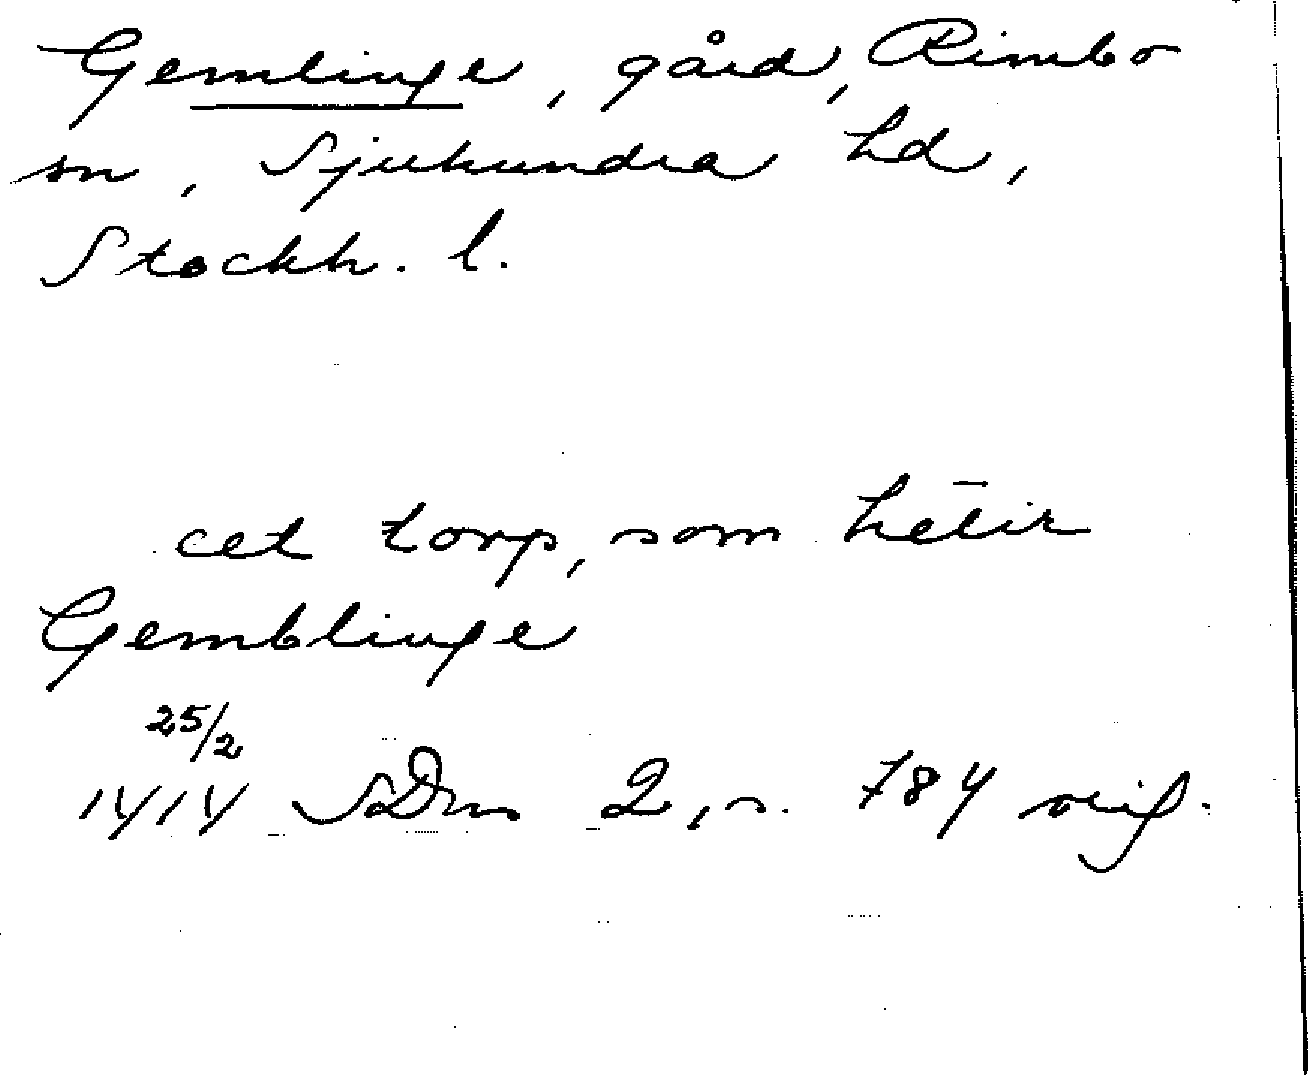 Gemlinge, gård, Rimbo
sn, Sjuhundra hd,
Stockh. l.
eet torp, som hētir
Gemblinge
25/2
1414 SDns 2, s. 784 orig.